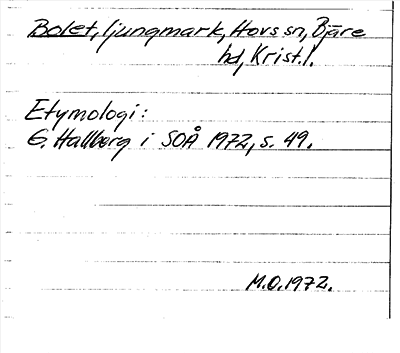 Bolet, ljungmark, Hovs sn, Bjäre
hd, Krist.l.
Etymologi:
G. Hallberg i SOÅ 1972, s. 49.
M.O. 1972.